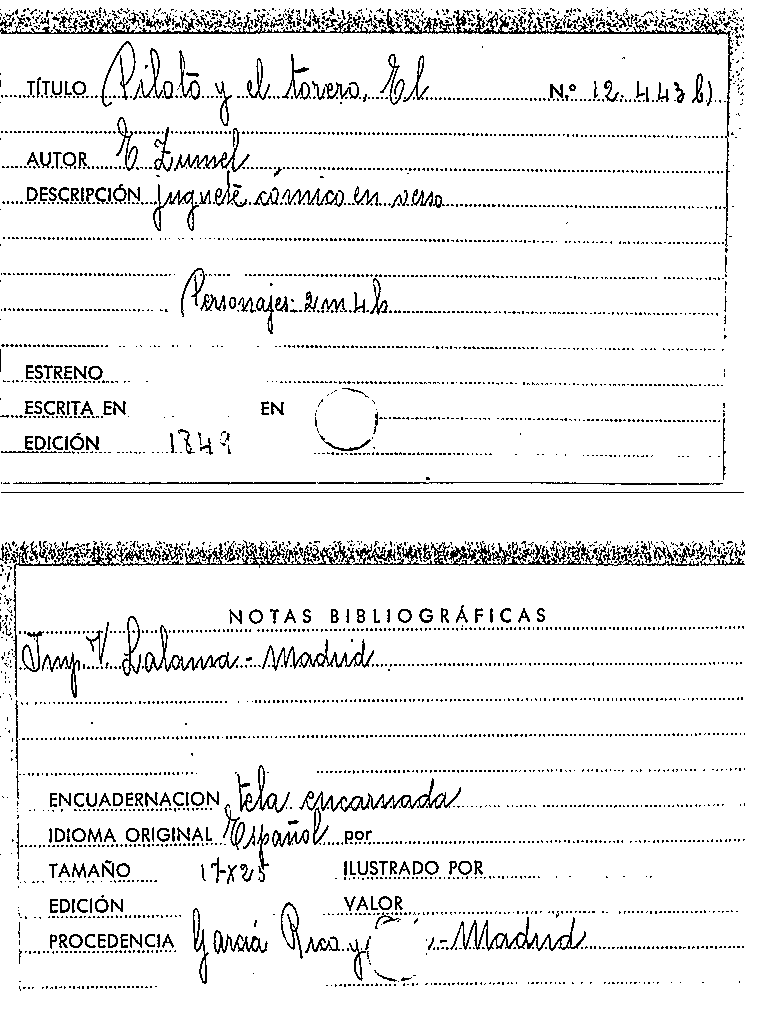 TÍTULO Piloto y el torero, El N.º 12.443 b)
AUTOR E Zumel
DESCRIPCIÓN juguete cómico en verso
Personajes: 2 m 4 h
ESTRENO
ESCRITA EN EN
EDICIÓN 1849
NOTAS BIBLIOGRÁFICAS
Imp. V. Lalama - Madrid
ENCUADERNACION tela encarnada
IDIOMA ORIGINAL Español por
TAMAÑO 17x25 ILUSTRADO POR
EDICIÓN VALOR
PROCEDENCIA García Rico y - Madrid